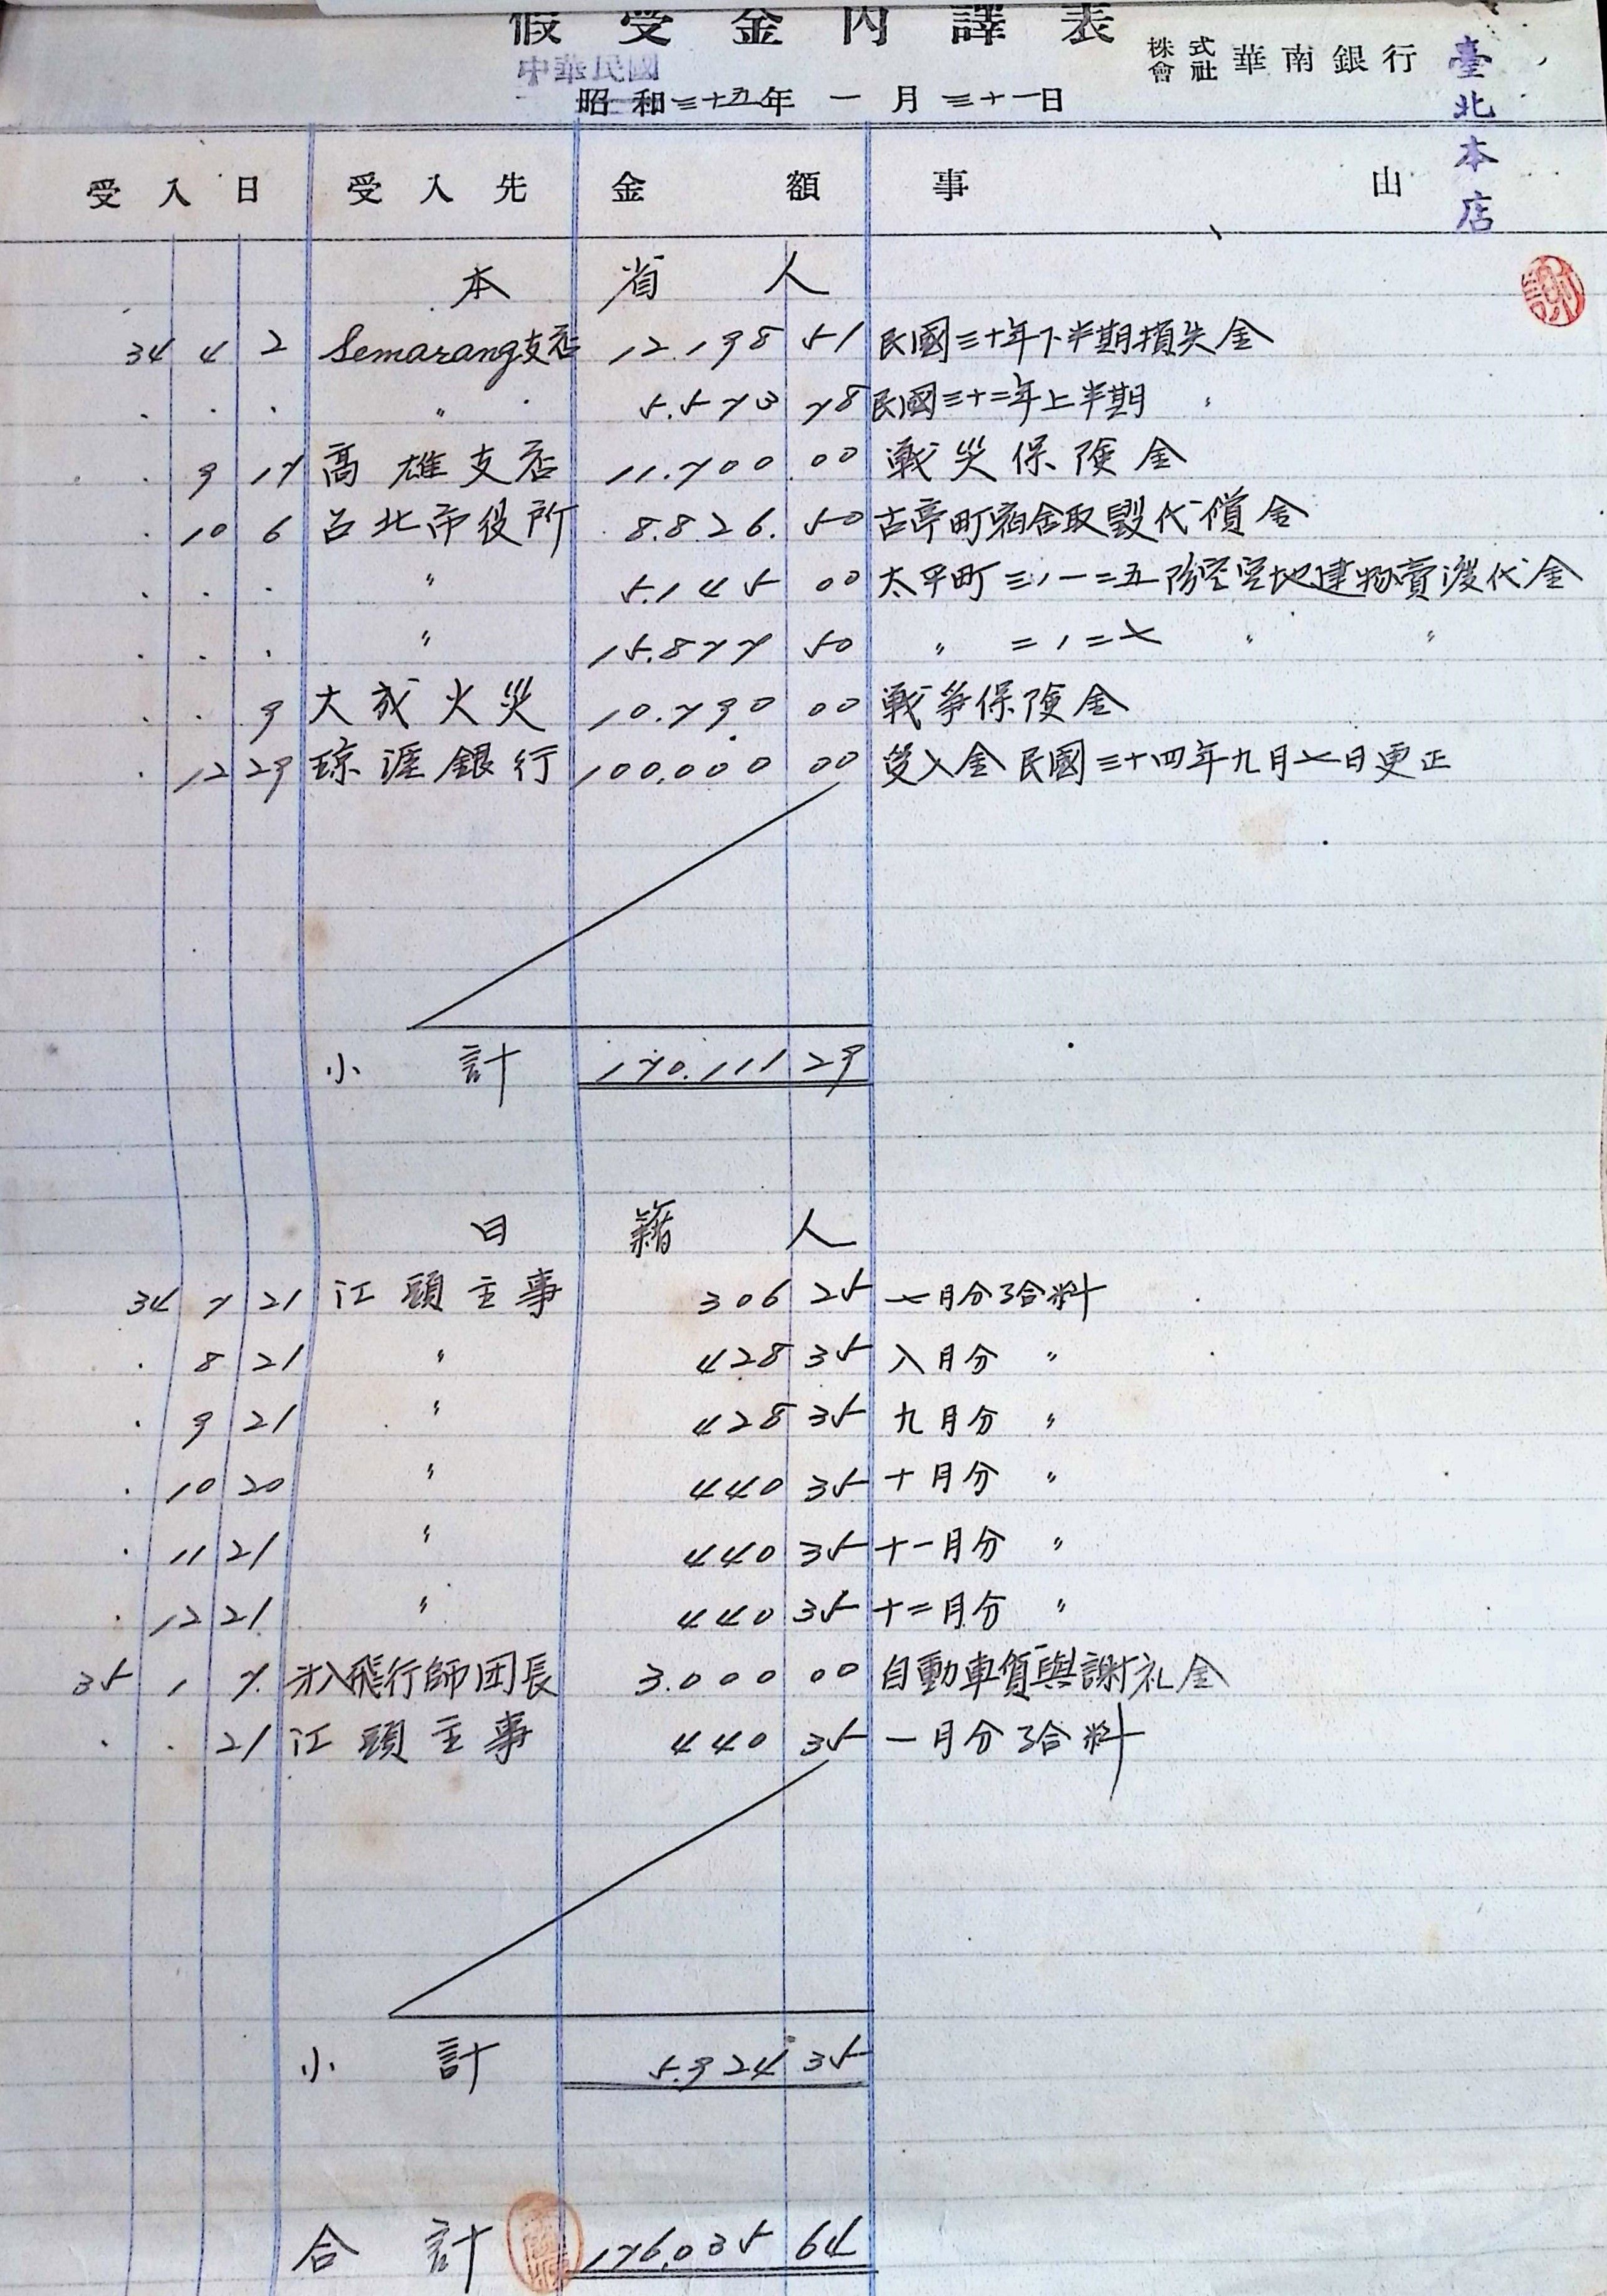 假受金內譯表
株式會社 華南銀行 臺北本店
中華民國
昭和三十五年 一月三十一日
受入日 受入先 金額 事由
本省人
34 4 2 Semarang支店 12.198 51 民國三十年下半期損失金
. . . 〃 5.573 78 民國三十二年上半期 〃
. 9 17 高雄支店 11.700 00 戰災保險金
. 10 6 台北市役所 8.826. 50 古亭町宿舍取毀代償金
. . . 〃 5.145 00 太平町三ノ一二五防空空地建物賣渡代金
. . . 〃 15.877 50 〃 二ノ二七 〃 〃
. . 9 大成火災 10.790 00 戰爭保險金
. 12 29 瓊涯銀行 100.000 00 受入金民國三十四年九月七日更正
小計 170.111 29
日籍人
34 7 21 江頭主事 306 25 七月分給料
. 8 21 〃 428 35 八月分 〃
. 9 21 〃 428 35 九月分 〃
. 10 20 〃 440 35 十月分 〃
. 11 21 〃 440 35 十一月分 〃
. 12 21 〃 440 35 十二月分 〃
35 1 7. 才八飛行師団長 3.000 00 自動車貸與謝礼金
. . 21 江頭主事 440 35 一月分給料
小計 5.924 35
合計 176.035 64